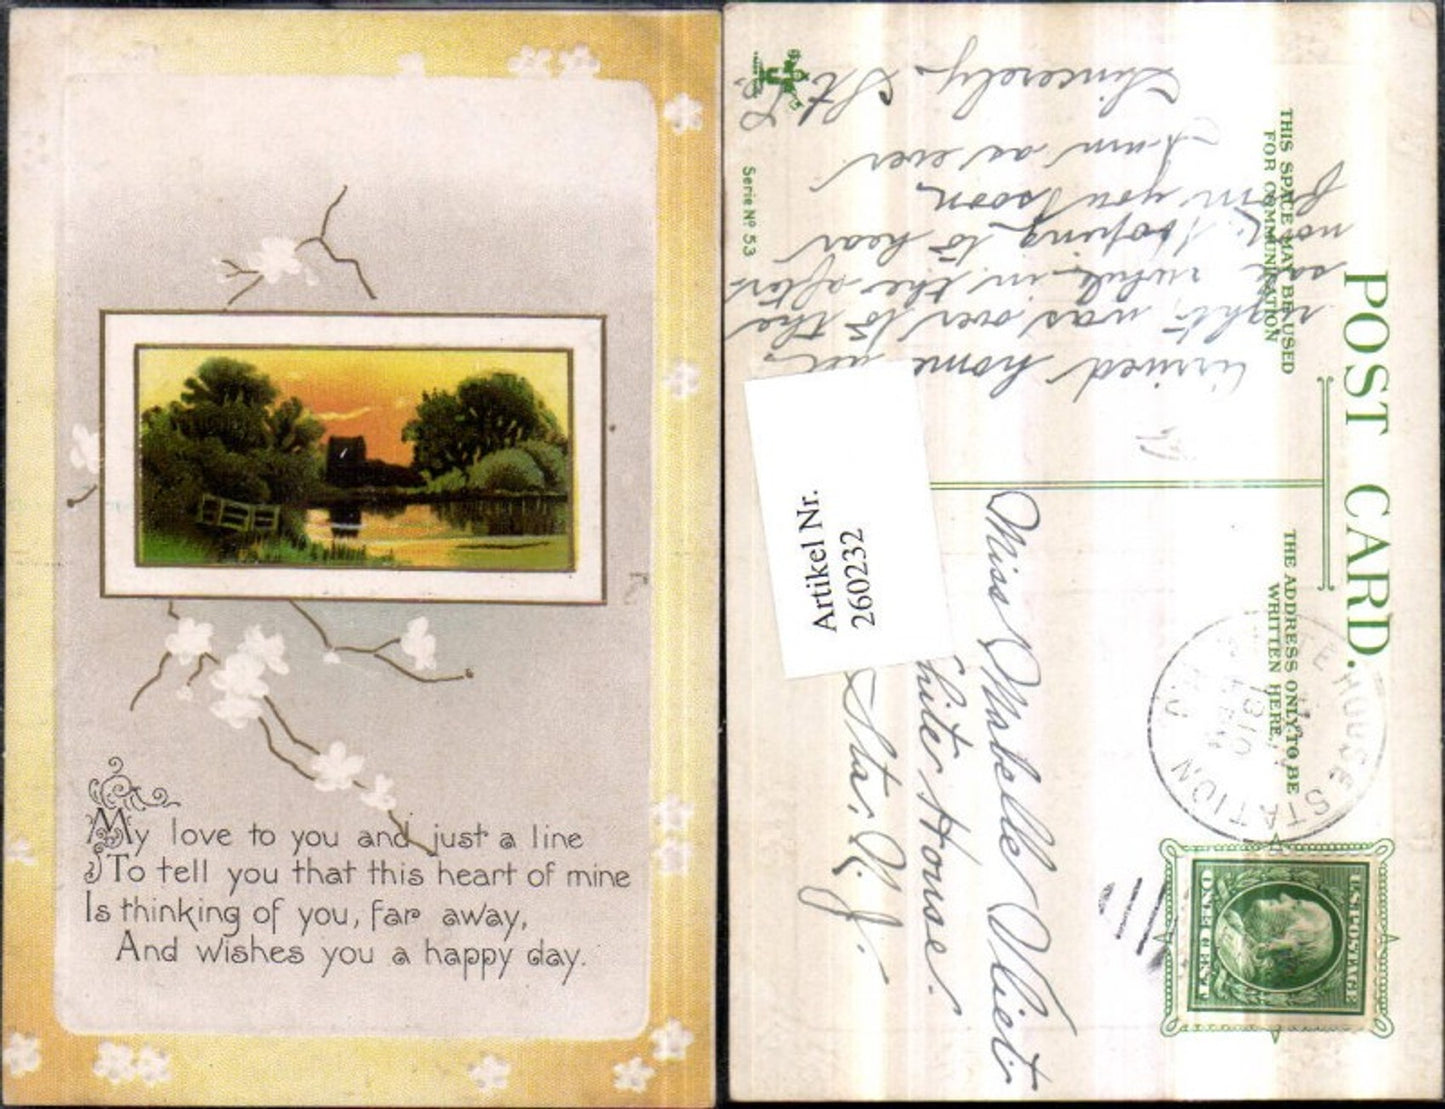 My love to you and just a line
To tell you that this heart of mine
Is thinking of you, far away,
And wishes you a happy day.
POST CARD.
THIS SPACE MAY BE USED
FOR COMMUNICATION
THE ADDRESS ONLY TO BE
WRITTEN HERE.
Serie Nº 53
Arrived home all
right, was over to the
while in the after
noon. Hoping to hear
from you soon.
I am as ever
Sincerely
Miss Mabelle Vliet
hite House.
Sta. N. J.
Artikel Nr.
260232
E HOUSE STATION
1910
N.J.
U.S. POSTAGE
ONE CENT